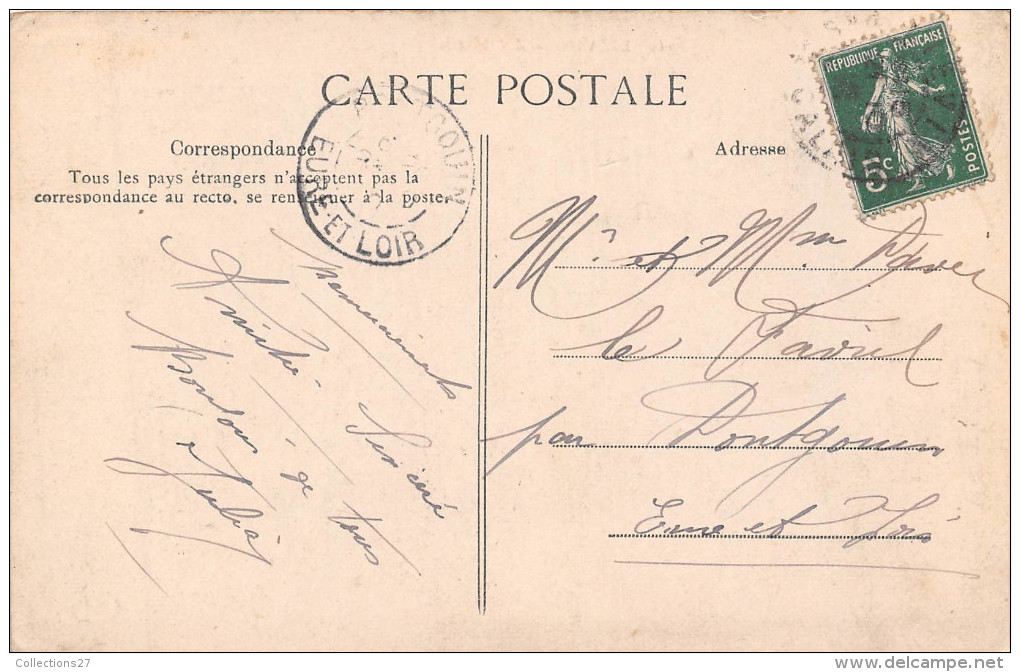 CARTE POSTALE
Correspondance
Tous les pays étrangers n'acceptent pas la
correspondance au recto, se renseigner à la poste.
Adresse
REPUBLIQUE FRANÇAISE
5c
POSTES
EURE-ET-LOIR
Mr et Mme
le Favril
par Pontgouin
Eure et
Remerciements
Sincère
Amitié de tous
Collections27
www.delcampe.net